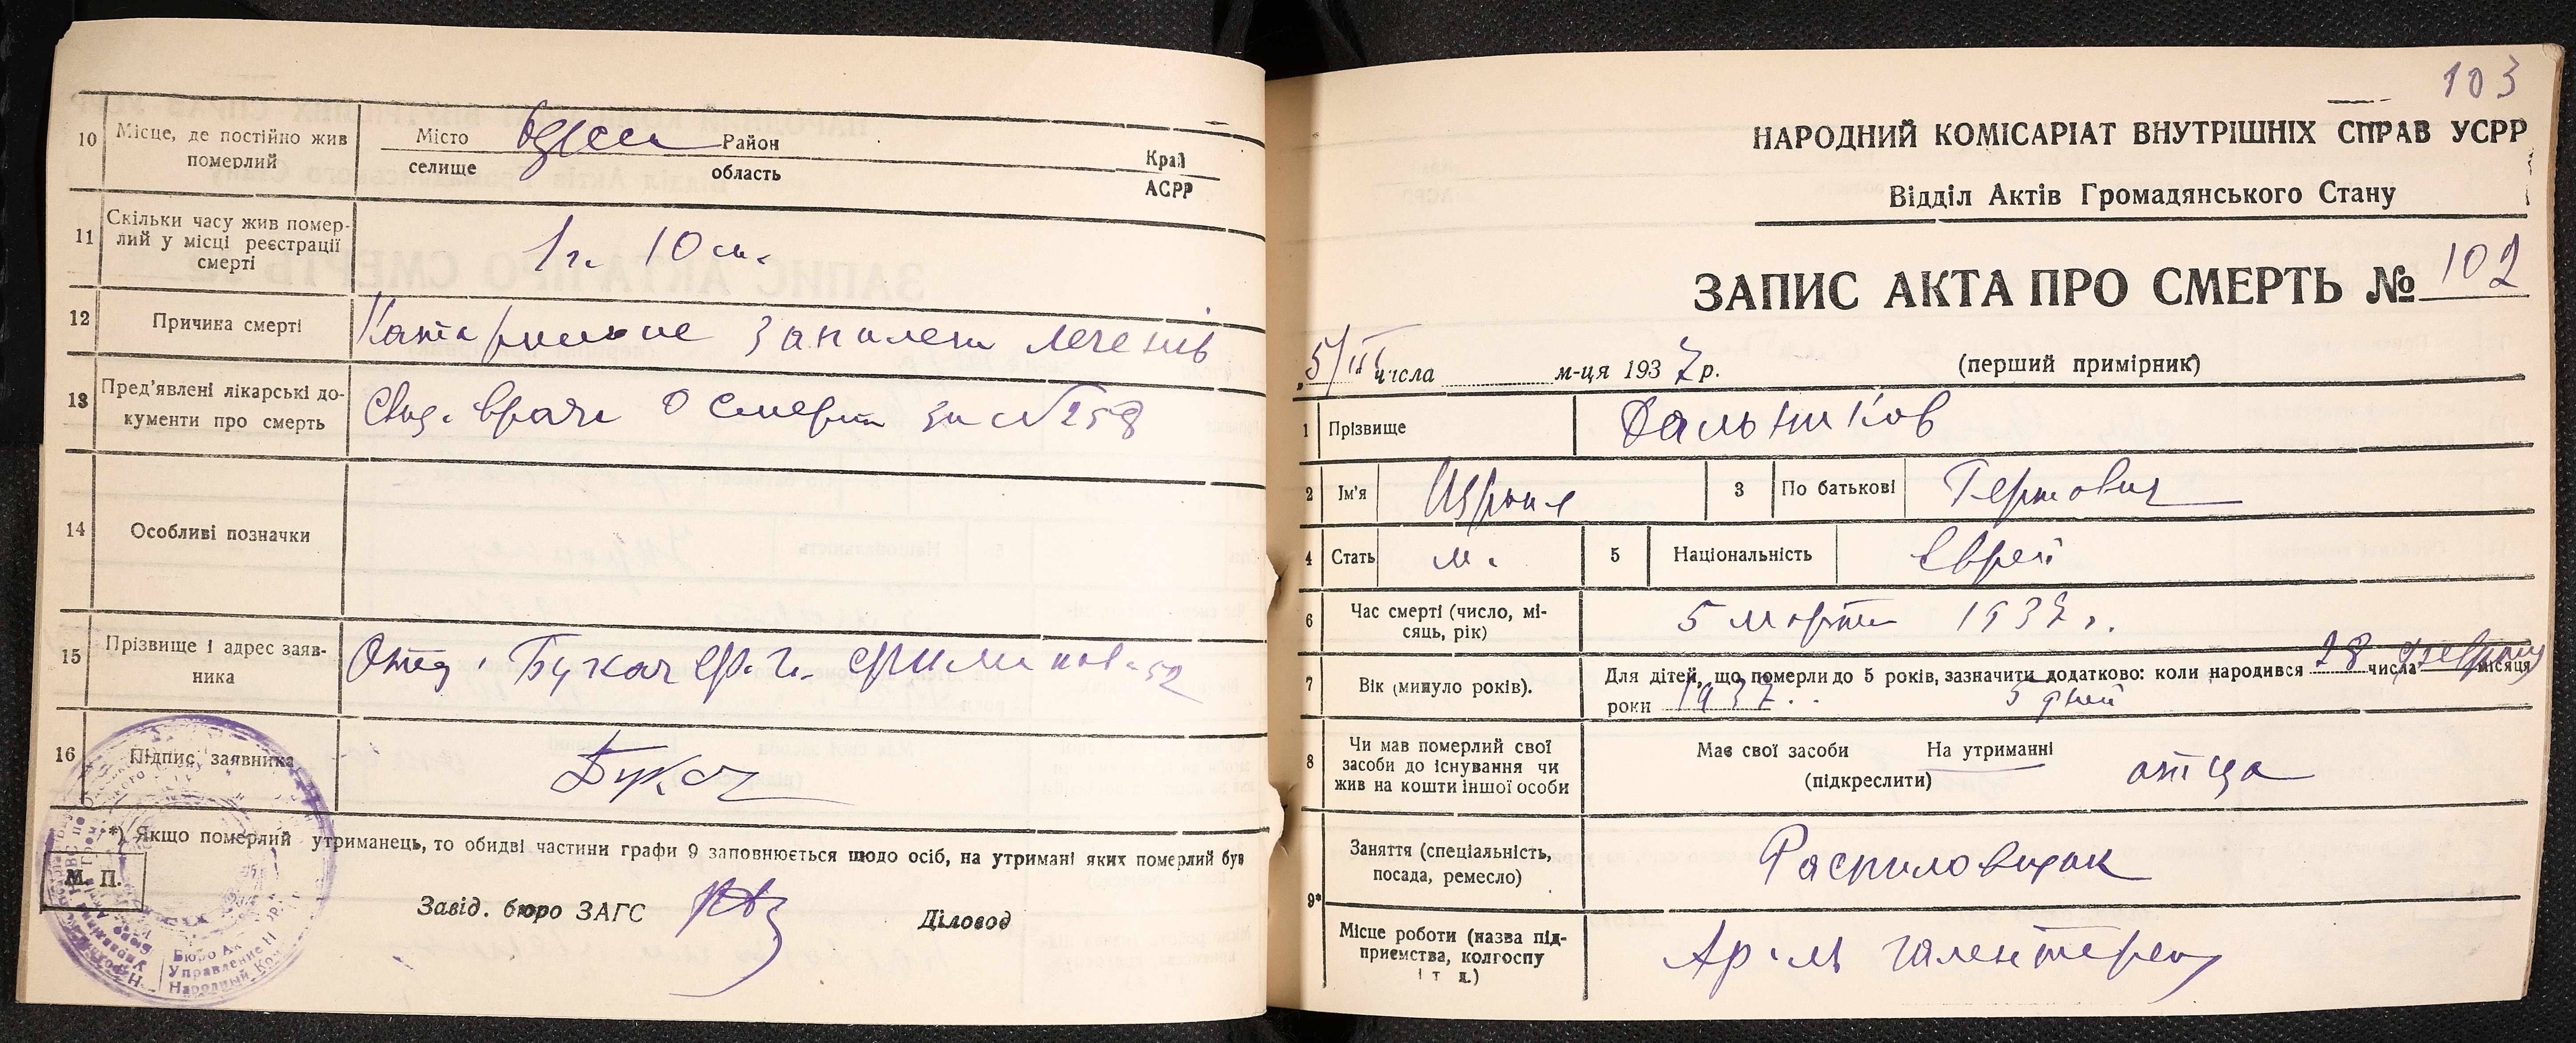 10 Місце, де постійно жив померлий
Місто Одесса Район Край
селище область АСРР
11 Скільки часу жив помер-
лий у місці реєстрації
смерті
1 г. 10 м.
12 Причина смерті
запален легенів
13 Пред'явлені лікарські до-
кументи про смерть
Свид. врача о смерти за №258
14 Особливі позначки
15 Прізвище і адрес заяв-
ника
Букач
16 Підпис заявника
Букач
*) Якщо померлий утриманець, то обидві частини графи 9 заповнюється щодо осіб, на утримані яких померлий був
М. П.
Завід. бюро ЗАГС Діловод
Бюро Ак
Управление Н
Народный Ком
103
НАРОДНИЙ КОМІСАРІАТ ВНУТРІШНІХ СПРАВ УСРР
Відділ Актів Громадянського Стану
ЗАПИС АКТА ПРО СМЕРТЬ № 102
„5/III числа м-ця 1937 р. (перший примірник)
1 Прізвище Дальников
2 Ім'я 3 По батькові
4 Стать м. 5 Національність Еврей
6 Час смерті (число, мі-
сяць, рік)
5 марта 1937 г.
7 Вік (минуло років).
Для дітей, що померли до 5 років, зазначити додатково: коли народився 28 числа февраля місяця
роки 1937 5 дней
8 Чи мав померлий свої
засоби до існування чи
жив на кошти іншої особи
Має свої засоби На утриманні отца
(підкреслити)
9* Заняття (спеціальність,
посада, ремесло)
Распиловщик
Місце роботи (назва під-
приємства, колгоспу
і т д.)